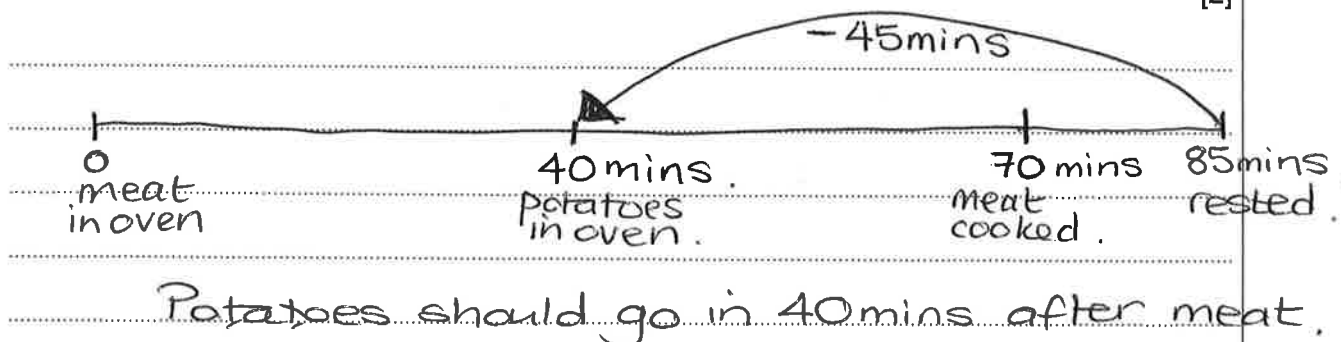 -45mins
0
meat
in oven
40 mins.
potatoes
in oven.
70 mins
meat
cooked.
85mins
rested.
Potatoes should go in 40mins after meat.